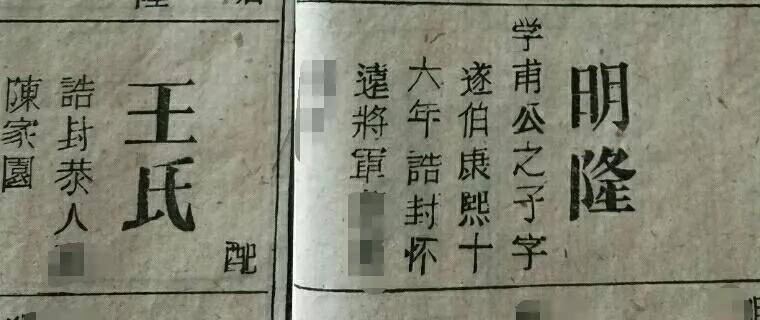 明隆
学甫公之子字
遂伯康熙十
六年誥封怀
遠將軍
配
王氏
誥封恭人
陳家園